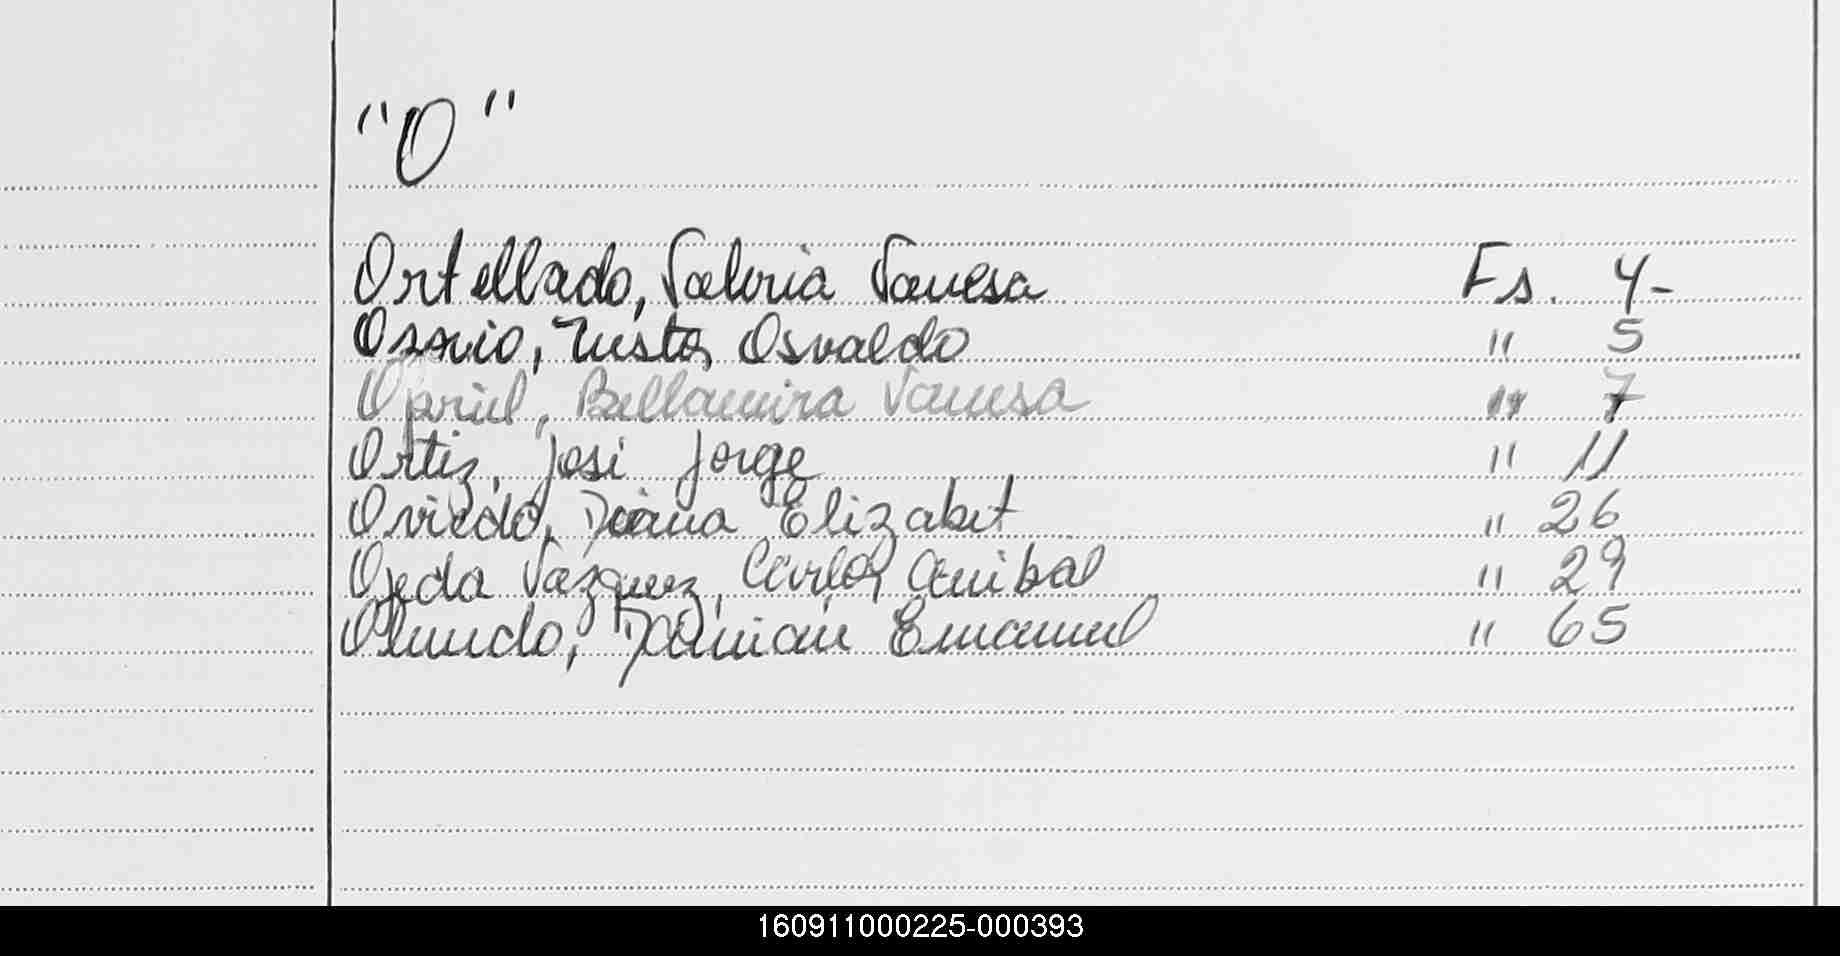 "O"
Ortellado, Valeria Vanesa Fs. 4-
Osorio, Justo, Osvaldo " 5
Opriel, Bellamira Vanesa " 7
Ortiz, José Jorge " 11
Oviedo, Diana Elizabet " 26
Ojeda Vazquez, Carlos Anibal " 29
Olmedo, Damián Emanuel " 65
160911000225-000393